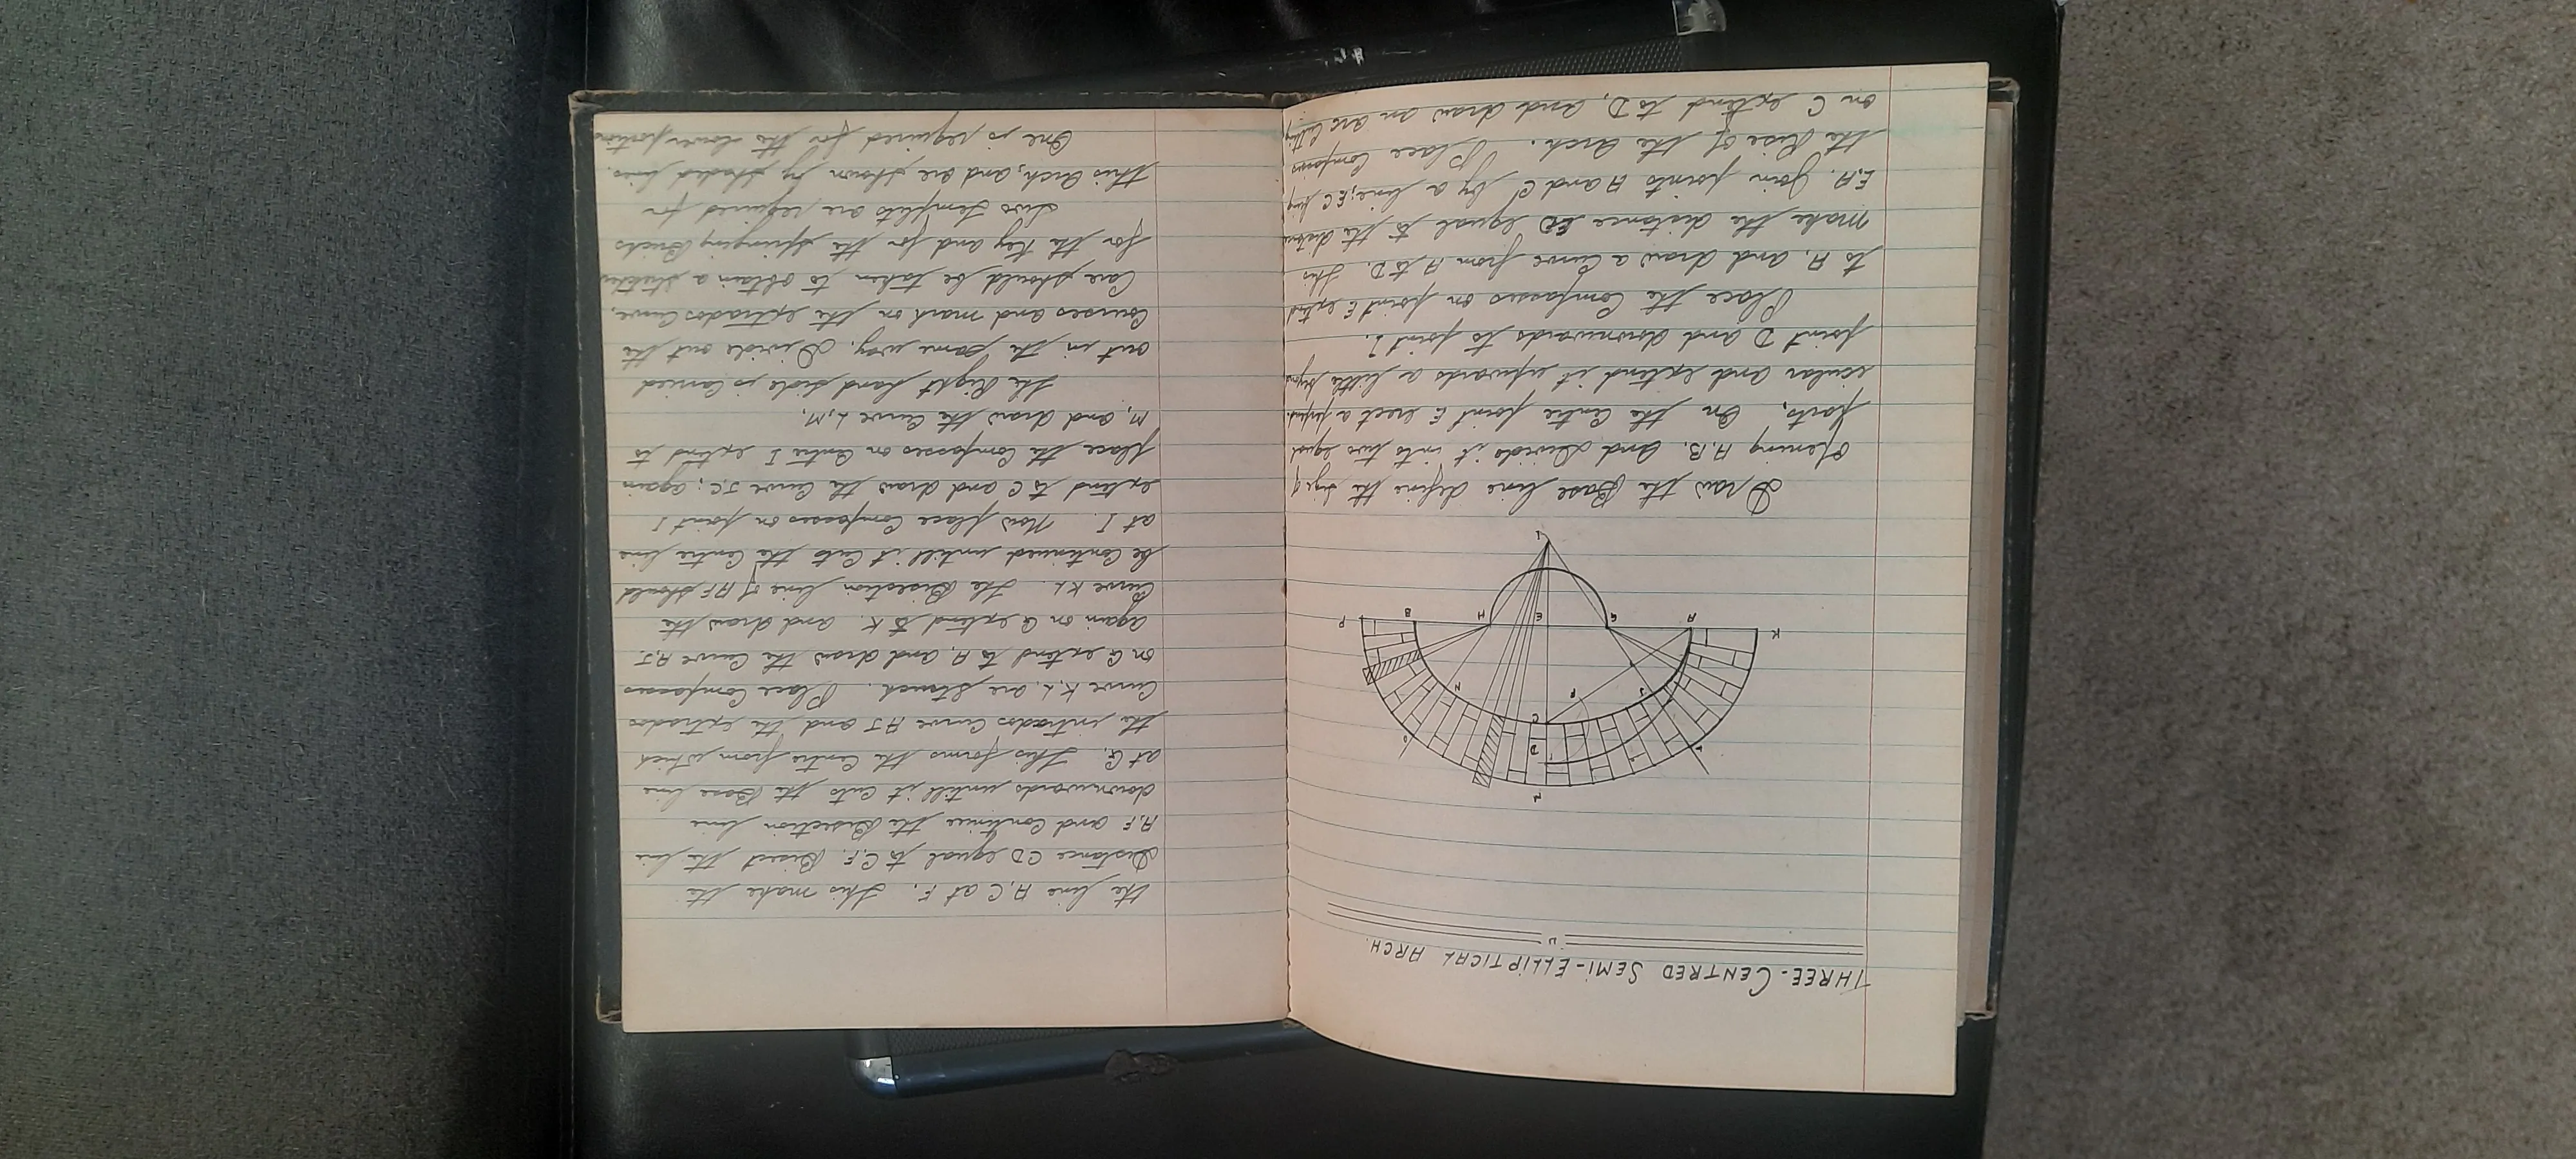 THREE-CENTRED SEMI-ELLIPTICAL ARCH.
M
D
L
O
C
J
F
N
K
A
G
E
H
B
P
I
Draw the Base line define the size of
Opening A.B. and divide it into two equal
parts, On the Centre point E erect a perpend-
icular and extend it upwards a little beyond
point D and downwards to point I.
Place the Compasses on point E extend
to A, and draw a Curve from A to D. This
make the distance ED equal to the distance
E,A. Join points A and C by a line; E.C being
the Rise of the Arch. Place Compasses
on C extend to D, and draw an arc cutting
the line A,C at F. This make the
Distance CD equal to C.F. Bisect the line
A.F and Continue the Bisection line
downwards untill it cuts the Base line
at G, This forms the Centre from which
the intrados Curve AJ and the extrados
Curve K,L are struck. Place Compasses
on G extend to A, and draw the Curve A.J.
Again on G extend to K. and draw the
Curve K L. The Bisection line of A F should
be Continued untill it Cuts the Centre line
at I. Now place Compasses on point I
extend to C and draw the Curve J.C; again
place the Compasses on Centre I extend to
M, and draw the Curve L,M,
The Right hand side is Carried
out in the same way. Divide out the
Courses and mark on the extrados Curve,
Care should be taken to obtain a stretcher
for the Key and for the springing Bricks
Two templets are required for
this Arch, and are shown by shaded lines.
One is required for the lower portion